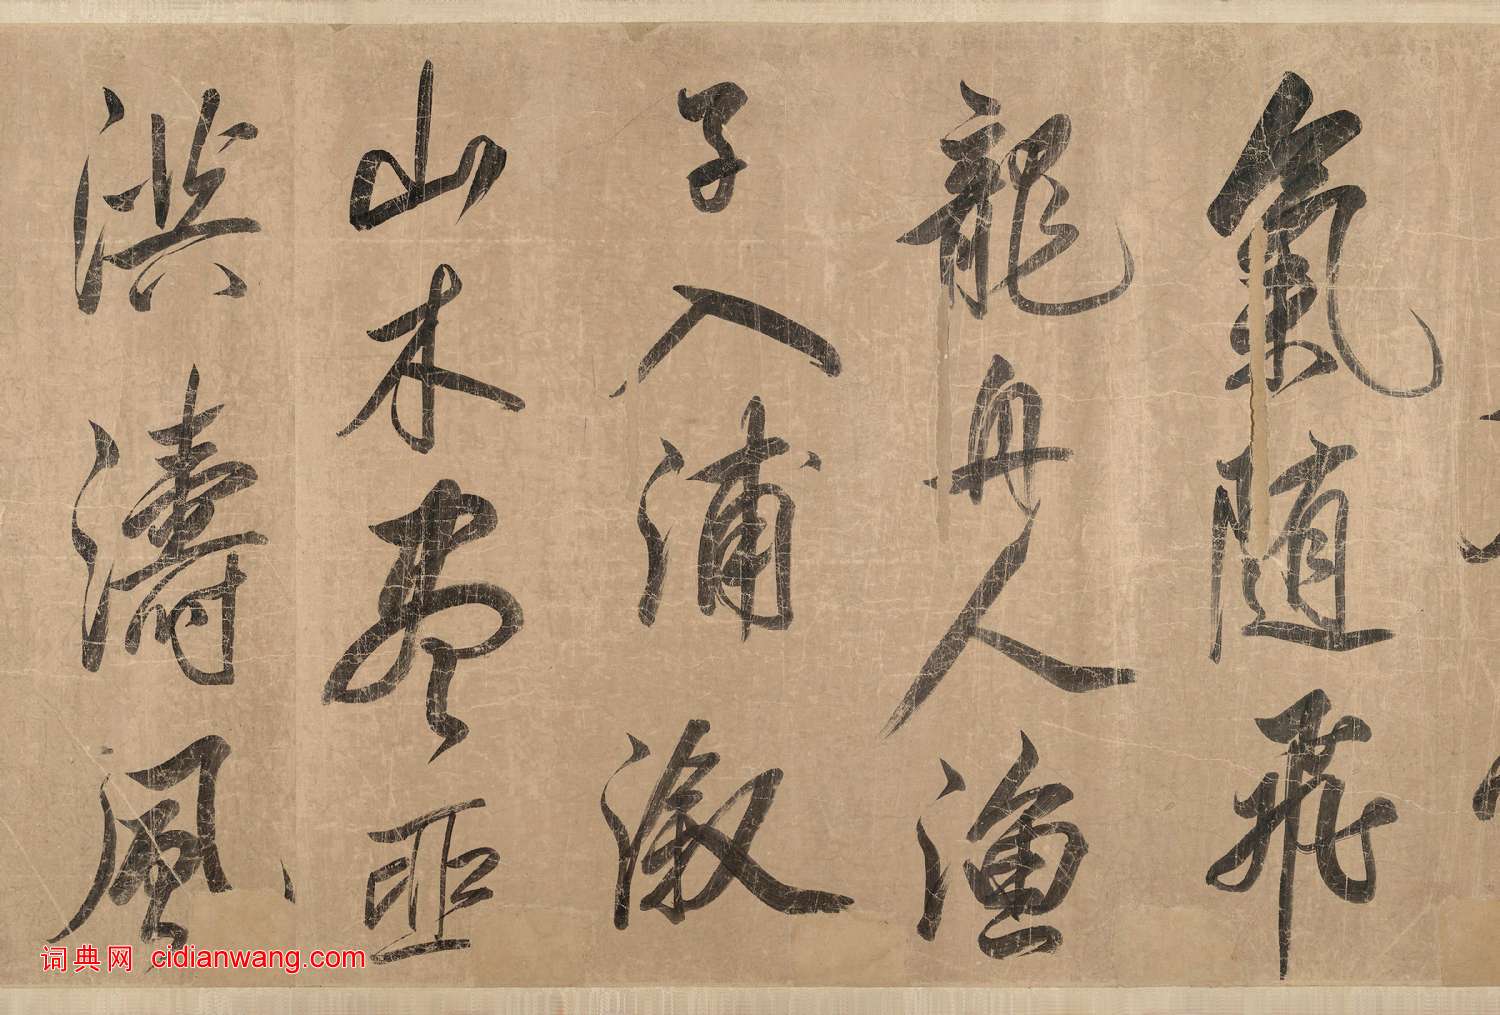 氣随飛
龍舟人漁
子入浦溆
山木盡亞
洪濤風
词典网 cidianwang.com